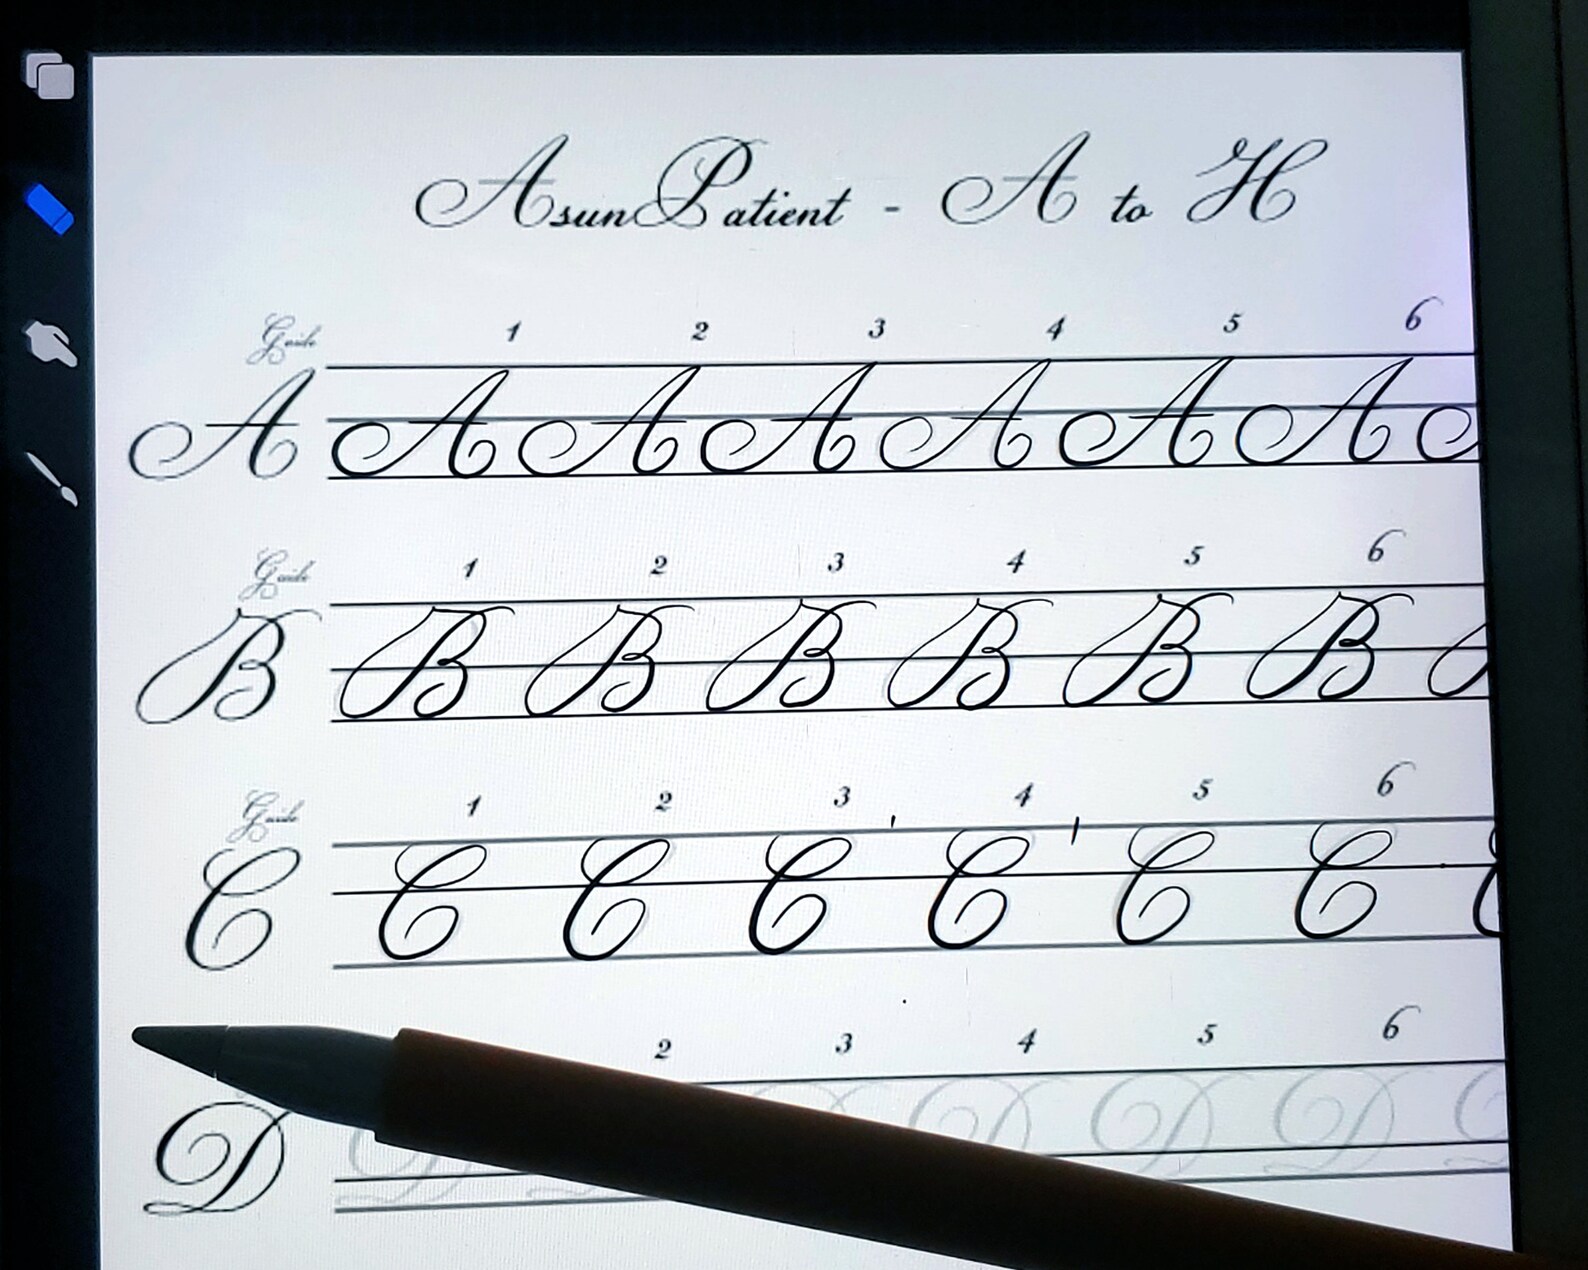 AsunPatient - A to H
Guide 1 2 3 4 5 6
A A A A A A A
Guide 1 2 3 4 5 6
B B B B B B B
Guide 1 2 3 4 5 6
C C C C C C C
2 3 4 5 6
D D D D D D